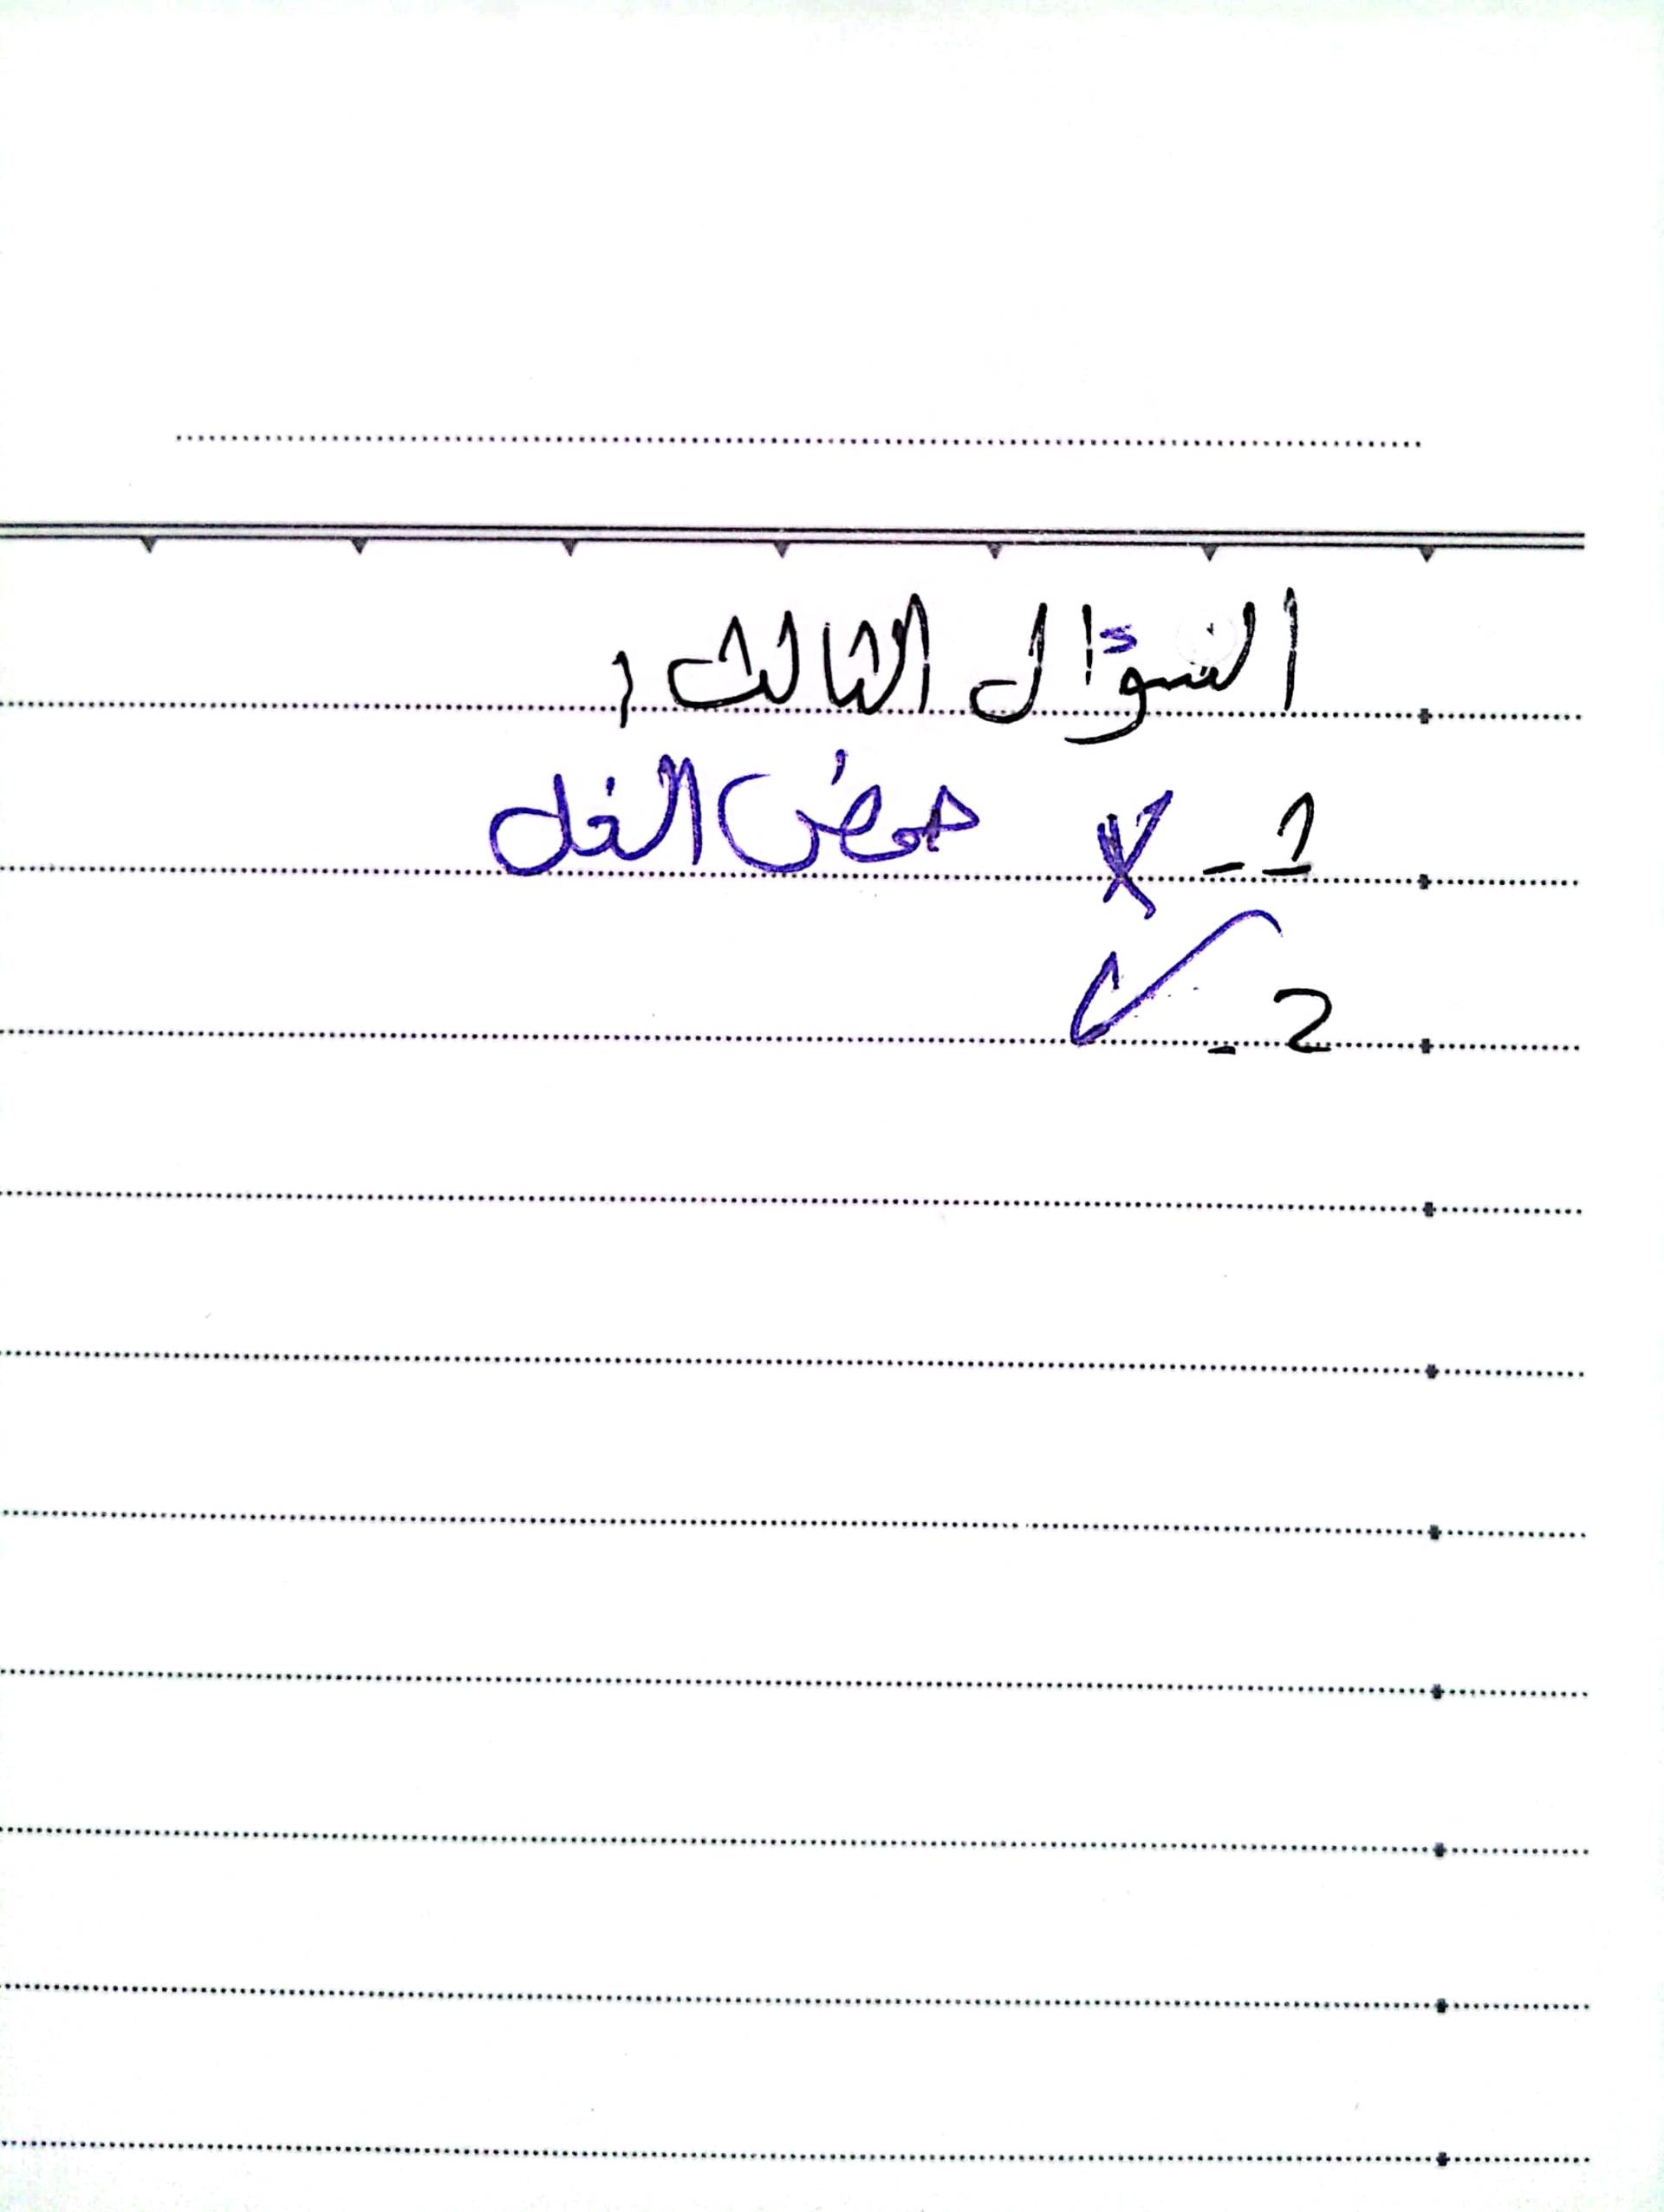 السؤال الثالث :
1 - X حمض الخل
2 - ✓